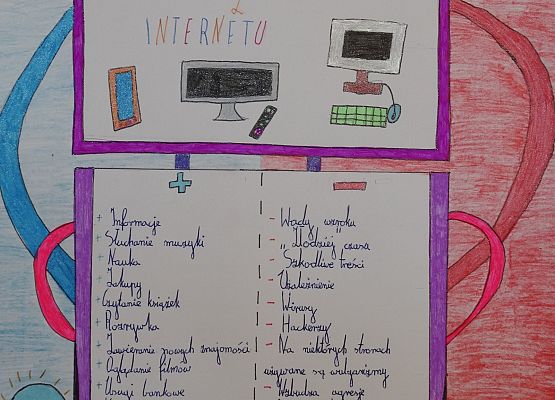 Z
INTERNETU
+ -
+ Informacje
+ Słuchanie muzyki
+ Nauka
+ Zakupy
+ Czytanie książek
+ Rozrywka
+ Zawieranie nowych znajomości
+ Oglądanie filmów
+ Usługi bankowe
- Wady wzroku
- „Złodziej" czasu
- Szkodliwe treści
- Uzależnienie
- Wirusy
- Hackerzy
- Na niektórych stronach
używane są wulgaryzmy
- Wzbudza agresję